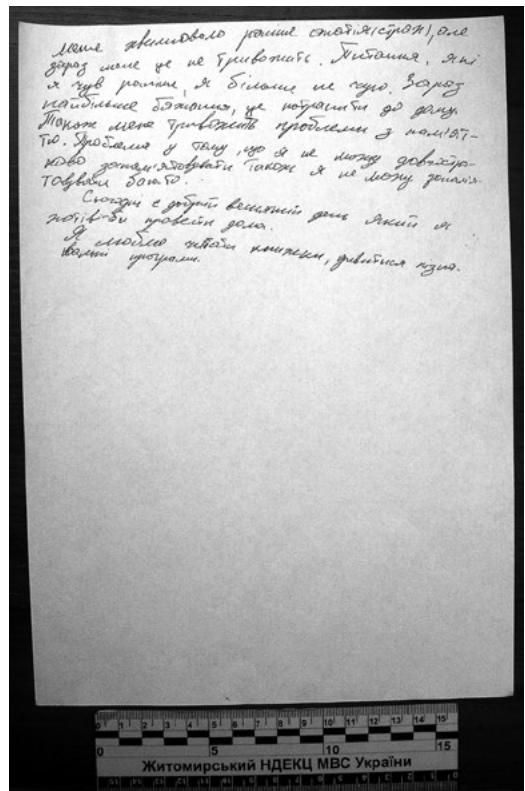 Мене хвилювало раніше апатія(страх), але
зараз мене це не тривожить. Питання, які
я чув раніше, я більше не чую. Зараз
найбільше бажання, це потрапити до дому.
Також мене тривожить проблеми з пам'ят-
тю. Проблема у тому, що я не можу
запам'ятовувати також я не можу запам'я-
товувати багато.
Сьогодні є добрий весняний день який я
хотів-би провести дома.
Я люблю читати книжки, дивитися пізна-
вальні програми.
0 1 2 3 4 5 6 7 8 9 10 11 12 13 14 15
0 5 10 15
Житомирський НДЕКЦ МВС України